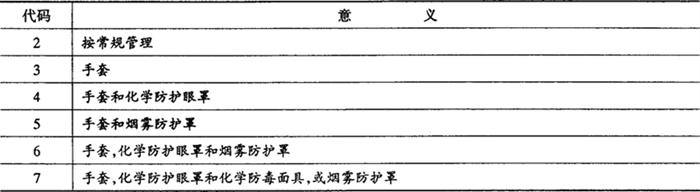 代码 意义
2 按常规管理
3 手套
4 手套和化学防护眼罩
5 手套和烟雾防护罩
6 手套,化学防护眼罩和烟雾防护罩
7 手套,化学防护眼罩和化学防毒面具,或烟雾防护罩